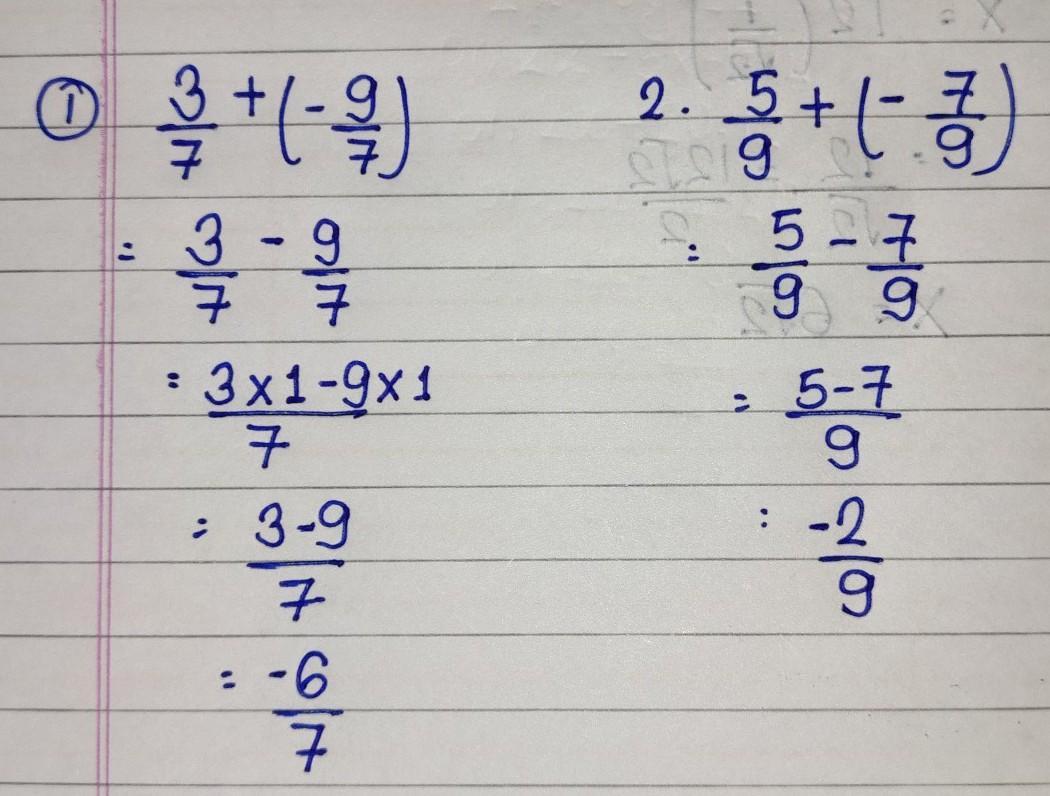 ① 3/7 + (- 9/7)
= 3/7 - 9/7
= 3 x 1 - 9 x 1 / 7
= 3 - 9 / 7
= -6 / 7
2. 5/9 + (- 7/9)
= 5/9 - 7/9
= 5 - 7 / 9
: -2 / 9